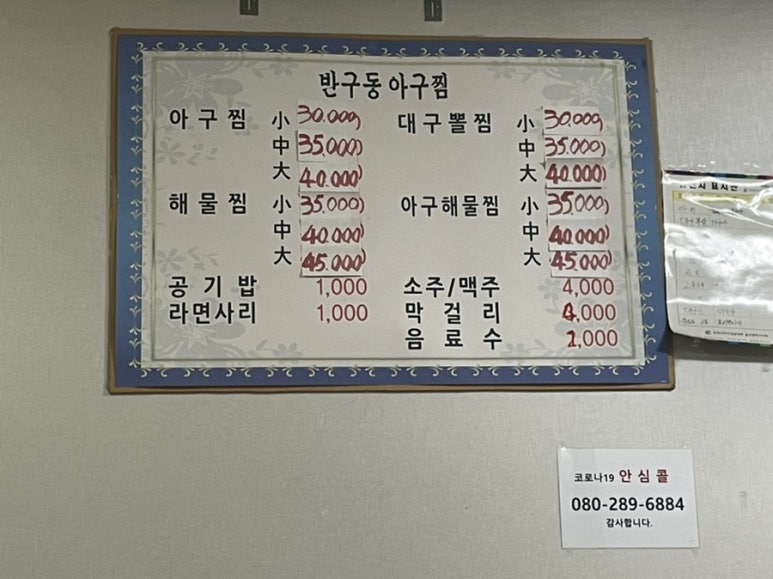 반구동 아구찜
아구찜 小 30.000
中 35.000
大 40.000
대구뽈찜 小 30.000
中 35.000
大 40.000
해물찜 小 35.000
中 40.000
大 45.000
아구해물찜 小 35.000
中 40.000
大 45.000
공기밥 1,000
라면사리 1,000
소주/맥주 4,000
막걸리 4,000
음료수 2,000
표시판
코로나19 안심콜
080-289-6884
감사합니다.